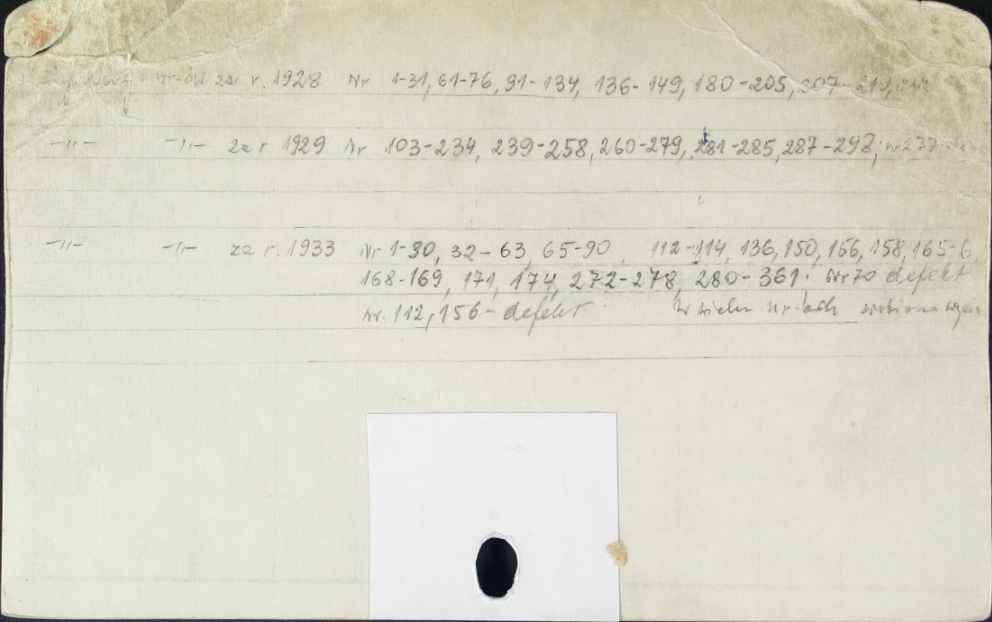 za r. 1928 Nr 1-31, 61-76, 91-134, 136-149, 180-205, 207-
-〃- -〃- za r 1929 Nr 103-234, 239-258, 260-279, 281-285, 287-298, nr 277
-〃- -〃- za r. 1933 Nr 1-30, 32-63, 65-90, 112-114, 136, 150, 156, 158, 165-6,
168-169, 171, 174, 272-278, 280-361. Nr 70 defekt
nr. 112, 156 - defekt W wielu nr-ach